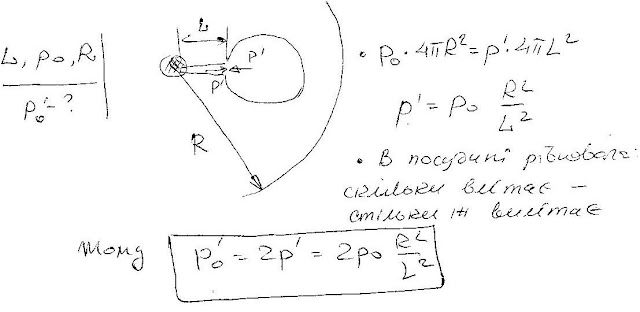 L, p₀, R
p₀' - ?
L
p'
p'
R
• p₀ · 4πR² = p' · 4πL²
p' = p₀ R²/L²
• В посудині рівновага:
скільки влітає –
стільки ж вилітає
тому p₀' = 2p' = 2p₀ R²/L²